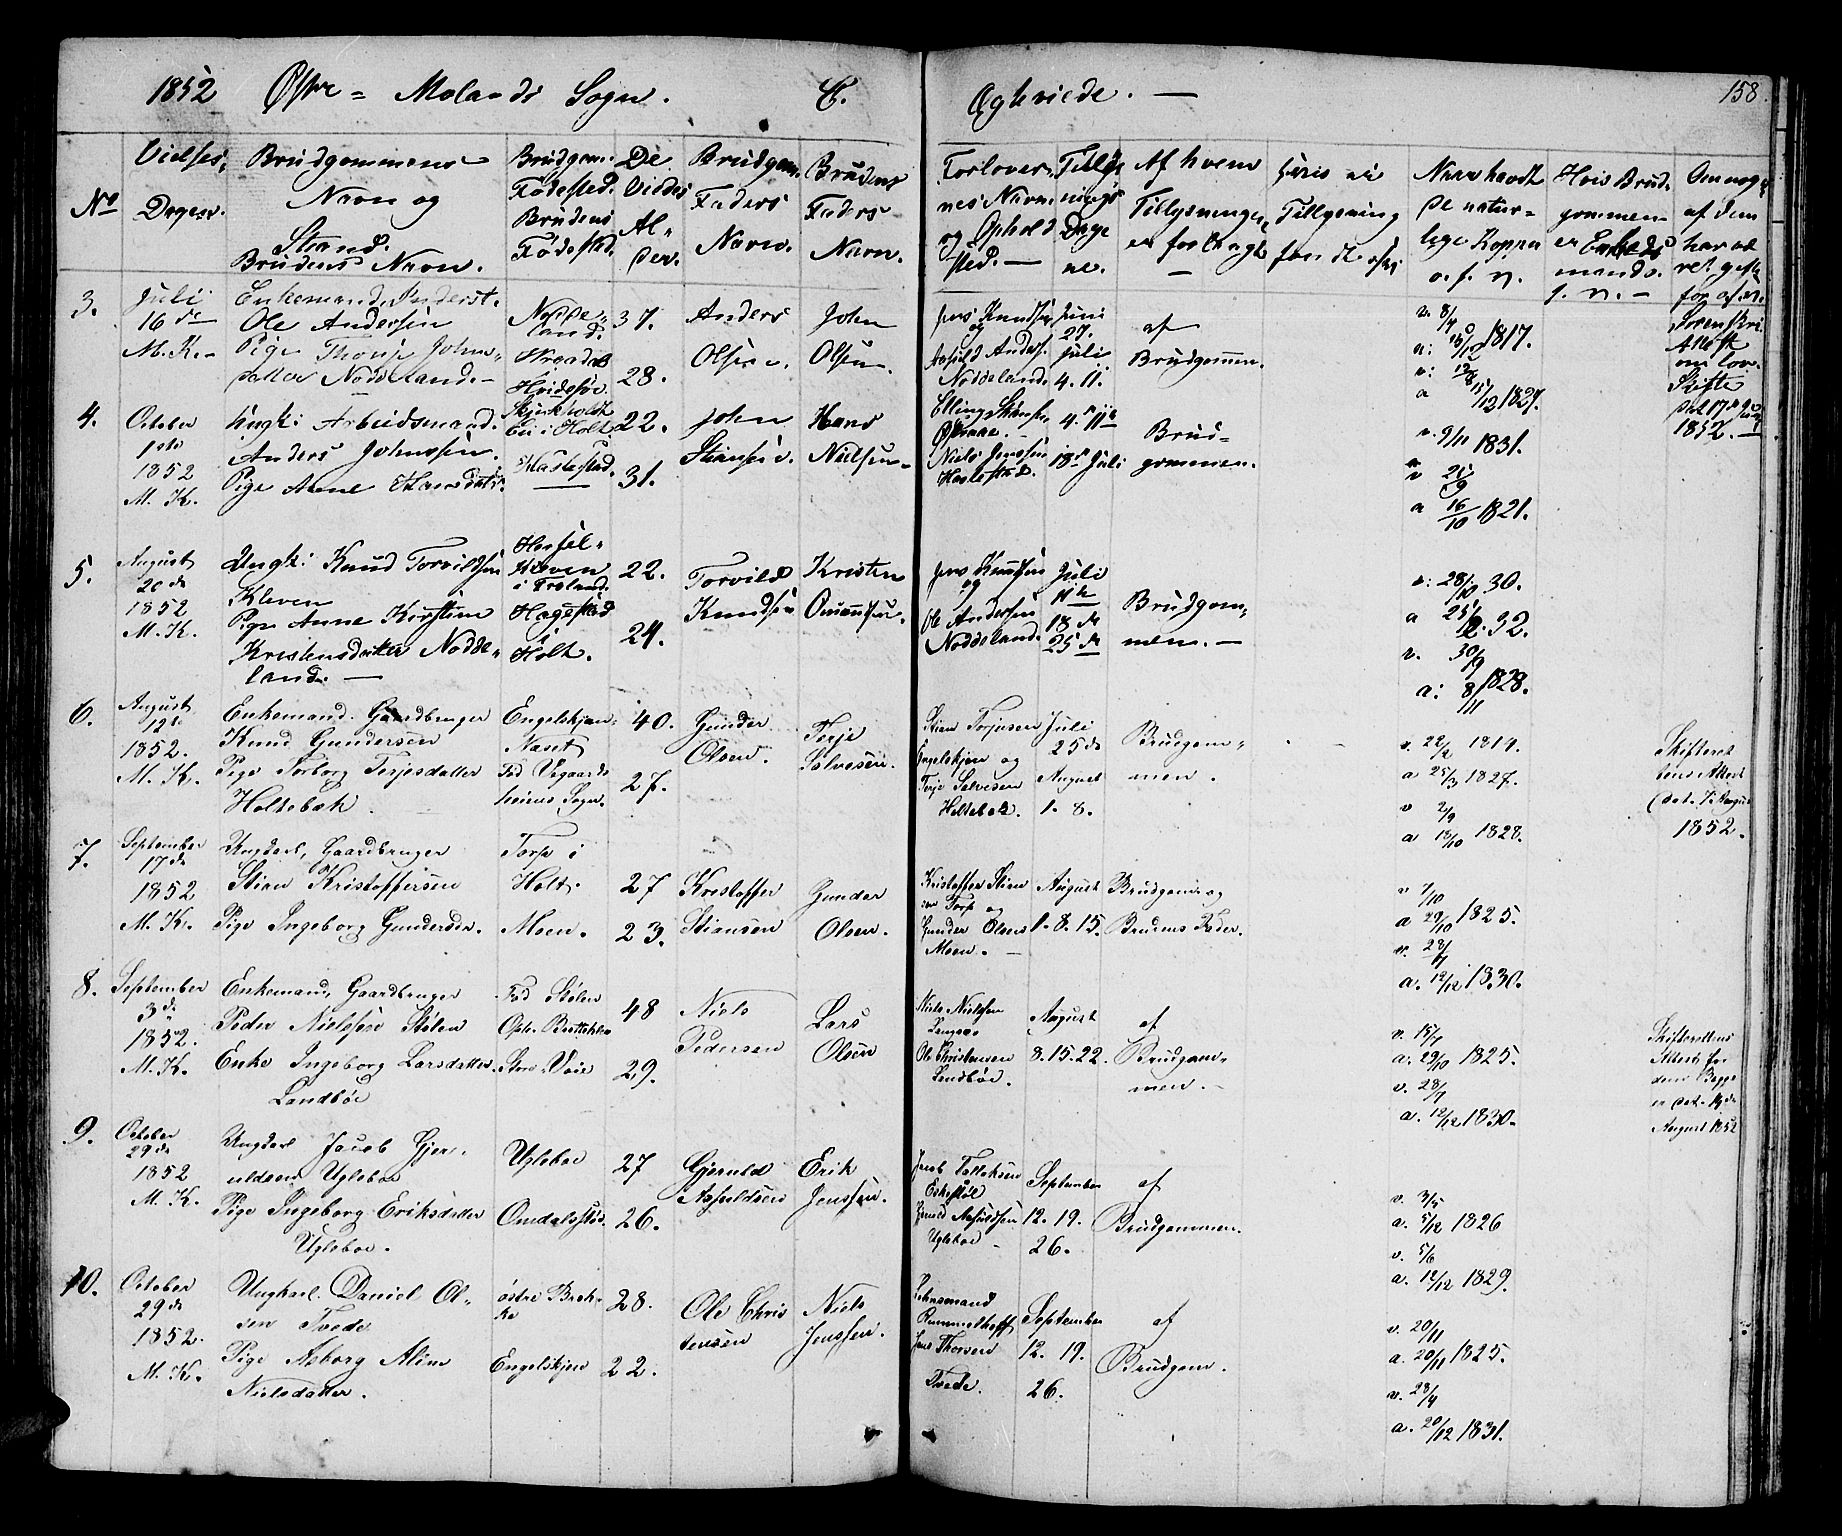 1852 Østre = Molands Sogn. C. Ægteviede. — 158.
No
Vielses,
Dagen.
Brudgommens
Navn og
Stand.
Brudens Navn.
Brudgom.
Fødested.
Brudens
Fødested.
De
Viedes
Al-
der.
Brudgom.
Faders
Navn.
Brudens
Faders
Navn.
Forlover-
nes Navn
og Ophold
sted. —
Tillys
nings
Dage
ne.
Af hvem
Tillysningen
er forlangt
—
Tillysning
Naar havdt
de natur-
lige Kopper
o. s. v.
Hvis Brud-
gommen
er Enke
mand
s. v. —
Om nog
af dem
har væ
ret gift
før
3.
Juli
16 de
M. K. -
Enkemand, Inderst.
Ole Andersen
Pige Johns-
datter Noddeland. -
Nodde-
land.
37.
28.
Anders
Olsen.
John
Olsen.
Jens Knudsen
og
Anders.
Noddeland.
Juni
27.
Juli
4. 11.
af
Brudgommen.
1817.
1827.
Skifte
dat. 17
1852. —
4.
October
1ste
1852
M. K.
Ungk: Arbeidsmand.
Anders Johnsen.
Pige Anne Hansdatr.
i Holt.
Hastestad.
22.
31.
John
Stiansen.
Hans
Nielsen
Niels Jenssen
Hastestad.
4. 11te
18de Juli
Brud-
gommen.
v. 9/11 1831.
a 16/10 1821.
5.
August
20 de
1852
M. K.
Ungk: Knud Torvildsen
Kleven
Pige Anne Kirstine
Kristensdatter Nodde-
land. —
Kleven
i Froland.
Hagestad
i
Holt.
22.
24.
Torvild
Knudsen
Kristen
Omundsen.
Jens Knudsen
og
Ole Andersen
Noddeland.
Juli
11te
18 de
25 de
Brudgom-
men. —
v: 28/10 30.
a 25/12. 32.
v. 30/9
a: 8/11 1828.
6.
August
12te
1852.
M. K.
Enkemand. Gaardbruger
Knud Gundersen
Pige Torborg Terjesdatter
Holtebæk
Engelskjøn
Næset
Fød Vegaards
heiens Sogn.
40.
27.
Gunder
Olsen.
Terje
Salvesen.
Stian Terjesen
Engelskjen og
Terje Salvesen
Holtebæk.
Juli
25 de
August
1. 8.
Brudgom-
men.
v. 22/2 1819.
a 25/3 1827.
v 2/9
a 18/10 1828.
Skifteret
tens Attest
(dat. 7. August
1852.
7.
September
17 de
1852
M. K.
Ungkarl, Gaardbruger
Stian Kristoffersen
Pige Ingeborg Gundersdr.
Torp i
Holt.
Moen.
27
23.
Kristoffer
Stiansen
Gunder
Olsen.
Kristoffer Stian
sen Torp og
Gunder Olsen
Moen. —
August
1. 8. 15.
Brudgom. og
Brudens Fader.
v 7/10
a 29/10 1825.
a. 12/12 1830.
8.
September
3 de
1852.
M. K.
Enkemand, Gaardbruger
Peder Nielssen Stølen
Enke Ingeborg Larsdatter
Landbøe
Fød Stølen
48
29.
Niels
Pedersen
Lars
Olsen
Niels Nielssen
Langaas
Ole Christensen
Landbøe.
August
8. 15. 22.
af
Brudgom-
men. -
v. 15/7
a. 29/10 1825.
v. 28/7
a. 12/12 1830.
Skifterettens
Attest for
dem Begge
er dat. 19de
August 1852
9.
October
29 de
1852
M. K.
Ungkarl Jacob Gjer-
uldsen Ugleboe
Pige Ingeborg Eriksdatter
Ugleboe.
Ugleboe
Omdalsstø.
27
26.
Gjeruld
Asfuldsen
Erik
Jenssen.
Jacob Tallaksen
Eskestøl
Gjeruld Asfuldsen
Ugleboe
September
12. 19.
26.
af
Brudgommen.
v. 3/5
a. 5/12 1826
v. 5/6
a. 12/12 1829.
10.
October
29 de
1852.
M. K.
Ungkarl. Daniel Ol-
sen Tvede
Pige Asborg Aline
Nielsdatter.
østre Bræk-
ke
Engelskjen
28.
22.
Ole Chris
tensen
Niels
Jenssen.
Lehnsmand
Rummelhoff
Jens Thorsen
Tvede.
September
12. 19.
26.
af
Brudgom.
v. 20/11
a. 20/11 1825.
v. 28/4
a. 20/12 1831.